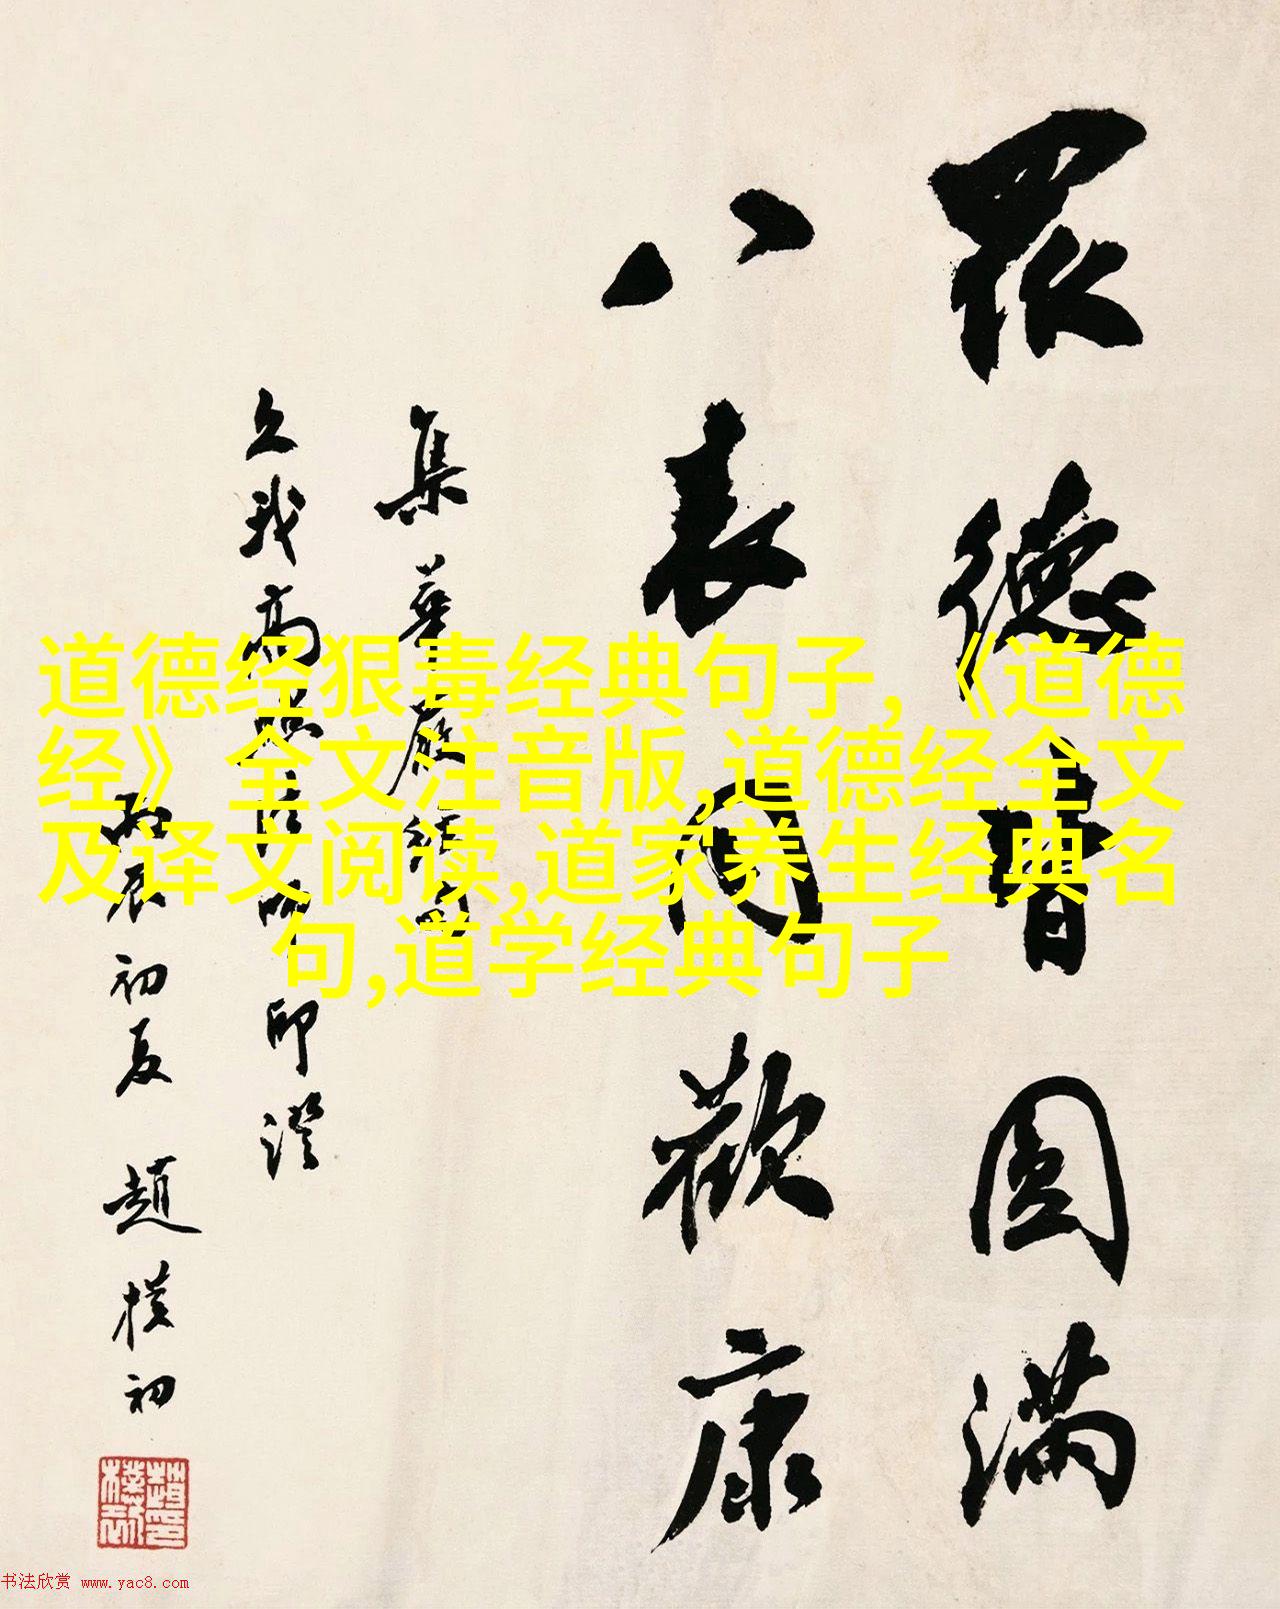 眾德普圓滿
八表同歡康
集華嚴經句
久我高法師印證
丙辰初夏 趙樸初
道德经狠毒经典句子,《道德
经》全文注音版,道德经全文
及译文阅读,道家养生经典名
句,道学经典句子
书法欣赏 www.yac8.com